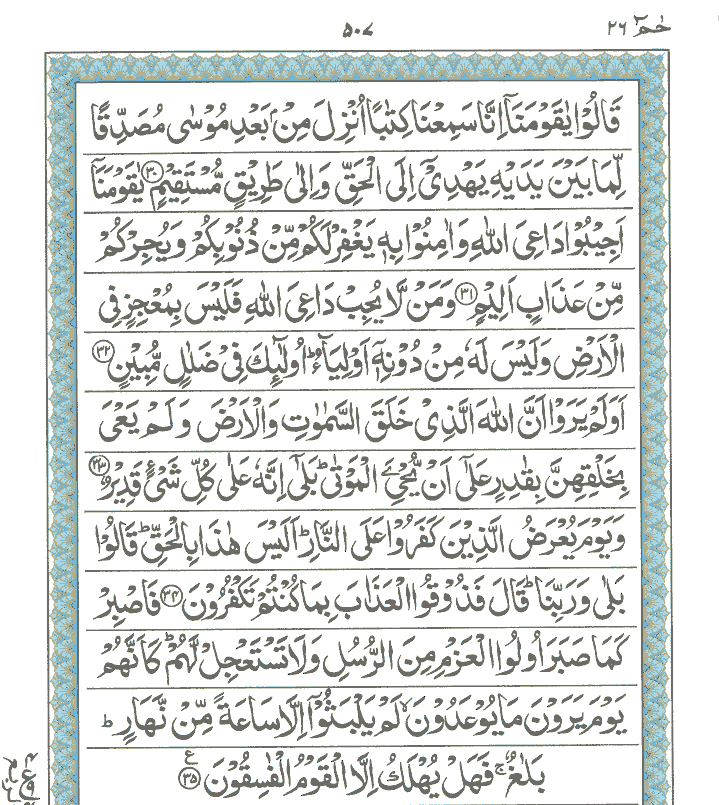 حٰمٓ ٢٦
٥٠٧
قَالُوْا يٰقَوْمَنَاۤ اِنَّا سَمِعْنَا كِتٰبًا اُنْزِلَ مِنْۢ بَعْدِ مُوْسٰى مُصَدِّقًا
لِّمَا بَيْنَ يَدَيْهِ يَهْدِىْۤ اِلَى الْحَقِّ وَاِلٰى طَرِيْقٍ مُّسْتَقِيْمٍ ﴿٣٠﴾ يٰقَوْمَنَاۤ
اَجِيْبُوْا دَاعِىَ اللّٰهِ وَاٰمِنُوْا بِهٖ يَغْفِرْ لَكُمْ مِّنْ ذُنُوْبِكُمْ وَيُجِرْكُمْ
مِّنْ عَذَابٍ اَلِيْمٍ ﴿٣١﴾ وَمَنْ لَّا يُجِبْ دَاعِىَ اللّٰهِ فَلَيْسَ بِمُعْجِزٍ فِى
الْاَرْضِ وَلَيْسَ لَهٗ مِنْ دُوْنِهٖۤ اَوْلِيَآءُ ؕ اُولٰٓئِكَ فِىْ ضَلٰلٍ مُّبِيْنٍ ﴿٣٢﴾
اَوَلَمْ يَرَوْا اَنَّ اللّٰهَ الَّذِىْ خَلَقَ السَّمٰوٰتِ وَالْاَرْضَ وَلَمْ يَعْىَ
بِخَلْقِهِنَّ بِقٰدِرٍ عَلٰٓى اَنْ يُّحْیِۦَ الْمَوْتٰى ؕ بَلٰٓى اِنَّهٗ عَلٰى كُلِّ شَىْءٍ قَدِيْرٌ ﴿٣٣﴾
وَيَوْمَ يُعْرَضُ الَّذِيْنَ كَفَرُوْا عَلَى النَّارِ ؕ اَلَيْسَ هٰذَا بِالْحَقِّ ؕ قَالُوْا
بَلٰى وَرَبِّنَا ؕ قَالَ فَذُوْقُوا الْعَذَابَ بِمَا كُنْتُمْ تَكْفُرُوْنَ ﴿٣٤﴾ فَاصْبِرْ
كَمَا صَبَرَ اُولُوا الْعَزْمِ مِنَ الرُّسُلِ وَلَا تَسْتَعْجِلْ لَّهُمْ ؕ كَاَنَّهُمْ
يَوْمَ يَرَوْنَ مَا يُوْعَدُوْنَ ۙ لَمْ يَلْبَثُوْۤا اِلَّا سَاعَةً مِّنْ نَّهَارٍ ؕ
بَلٰغٌ ۚ فَهَلْ يُهْلَكُ اِلَّا الْقَوْمُ الْفٰسِقُوْنَ ﴿٣٥﴾